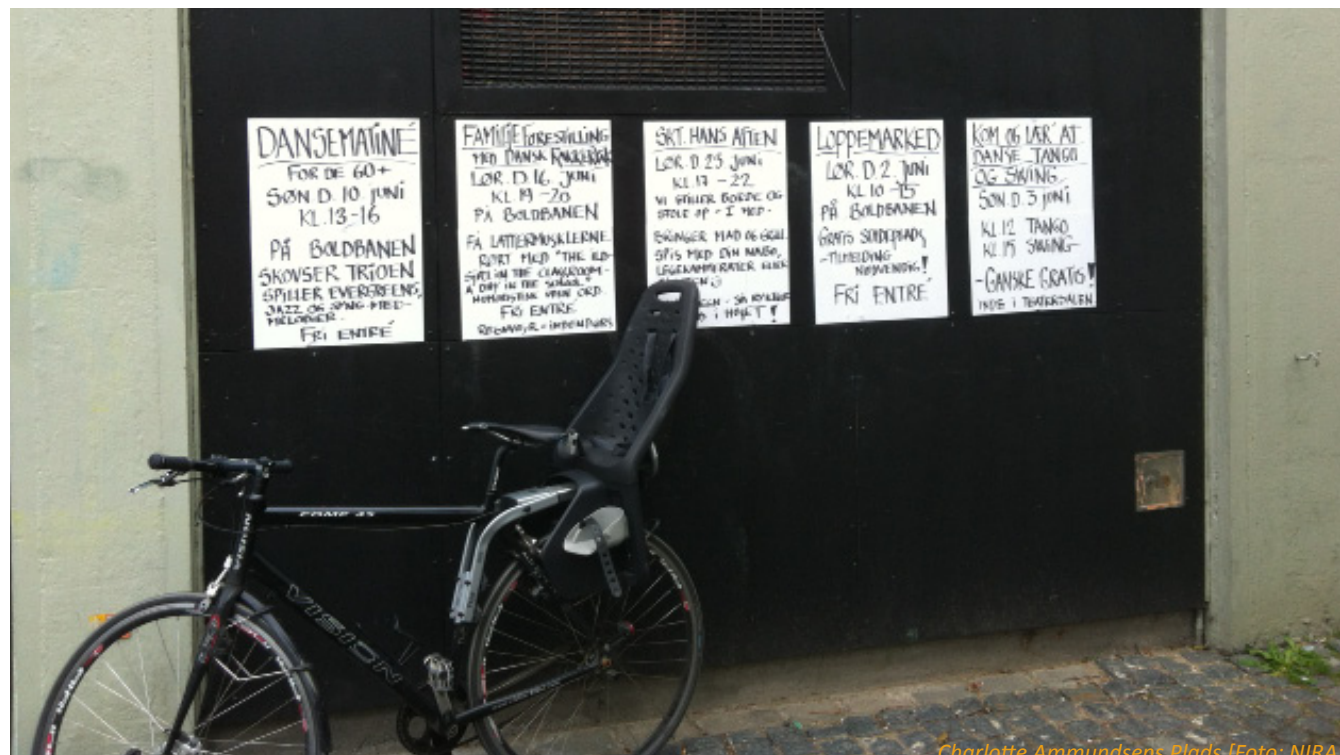 DANSEMATINÉ
FOR DE 60+
SØN D. 10 JUNI
KL. 13-16
PÅ BOLDBANEN
SKOVSER TRIOEN
SPILLER EVERGREENS,
JAZZ OG
FRI ENTRÉ
FAMILIEFORESTILLING
MED DANSK
LØR. D. 16. JUNI
KL. 19-20
PÅ BOLDBANEN
FÅ LATTERMUSKLERNE
RØRT MED "THE
IN THE CLASSROOM-
A DAY IN THE SCHOOL"
UDEN ORD.
FRI ENTRÉ
SKT. HANS AFTEN
LØR D 23 JUNI
KL. 17-22
VI STILLER BORDE OG
STOLE OP - I MED-
BRINGER MAD OG GRILL
SPIS MED DIN NABO,
LEGEKAMMERATER ELLER
LOPPEMARKED
LØR. D. 2. JUNI
KL 10-15
PÅ BOLDBANEN
GRATIS STADEPLADS
-TILMELDING
NØDVENDIG!
FRI ENTRÉ
KOM OG LÆR' AT
DANSE TANGO
OG SWING
SØN. D. 3 JUNI
KL 12 TANGO
KL 15 SWING-
-GANSKE GRATIS!
INDE I TEATERDALEN
COMP 45
VISION
VISION
Charlotte Ammundsens Plads [Foto: NIRA